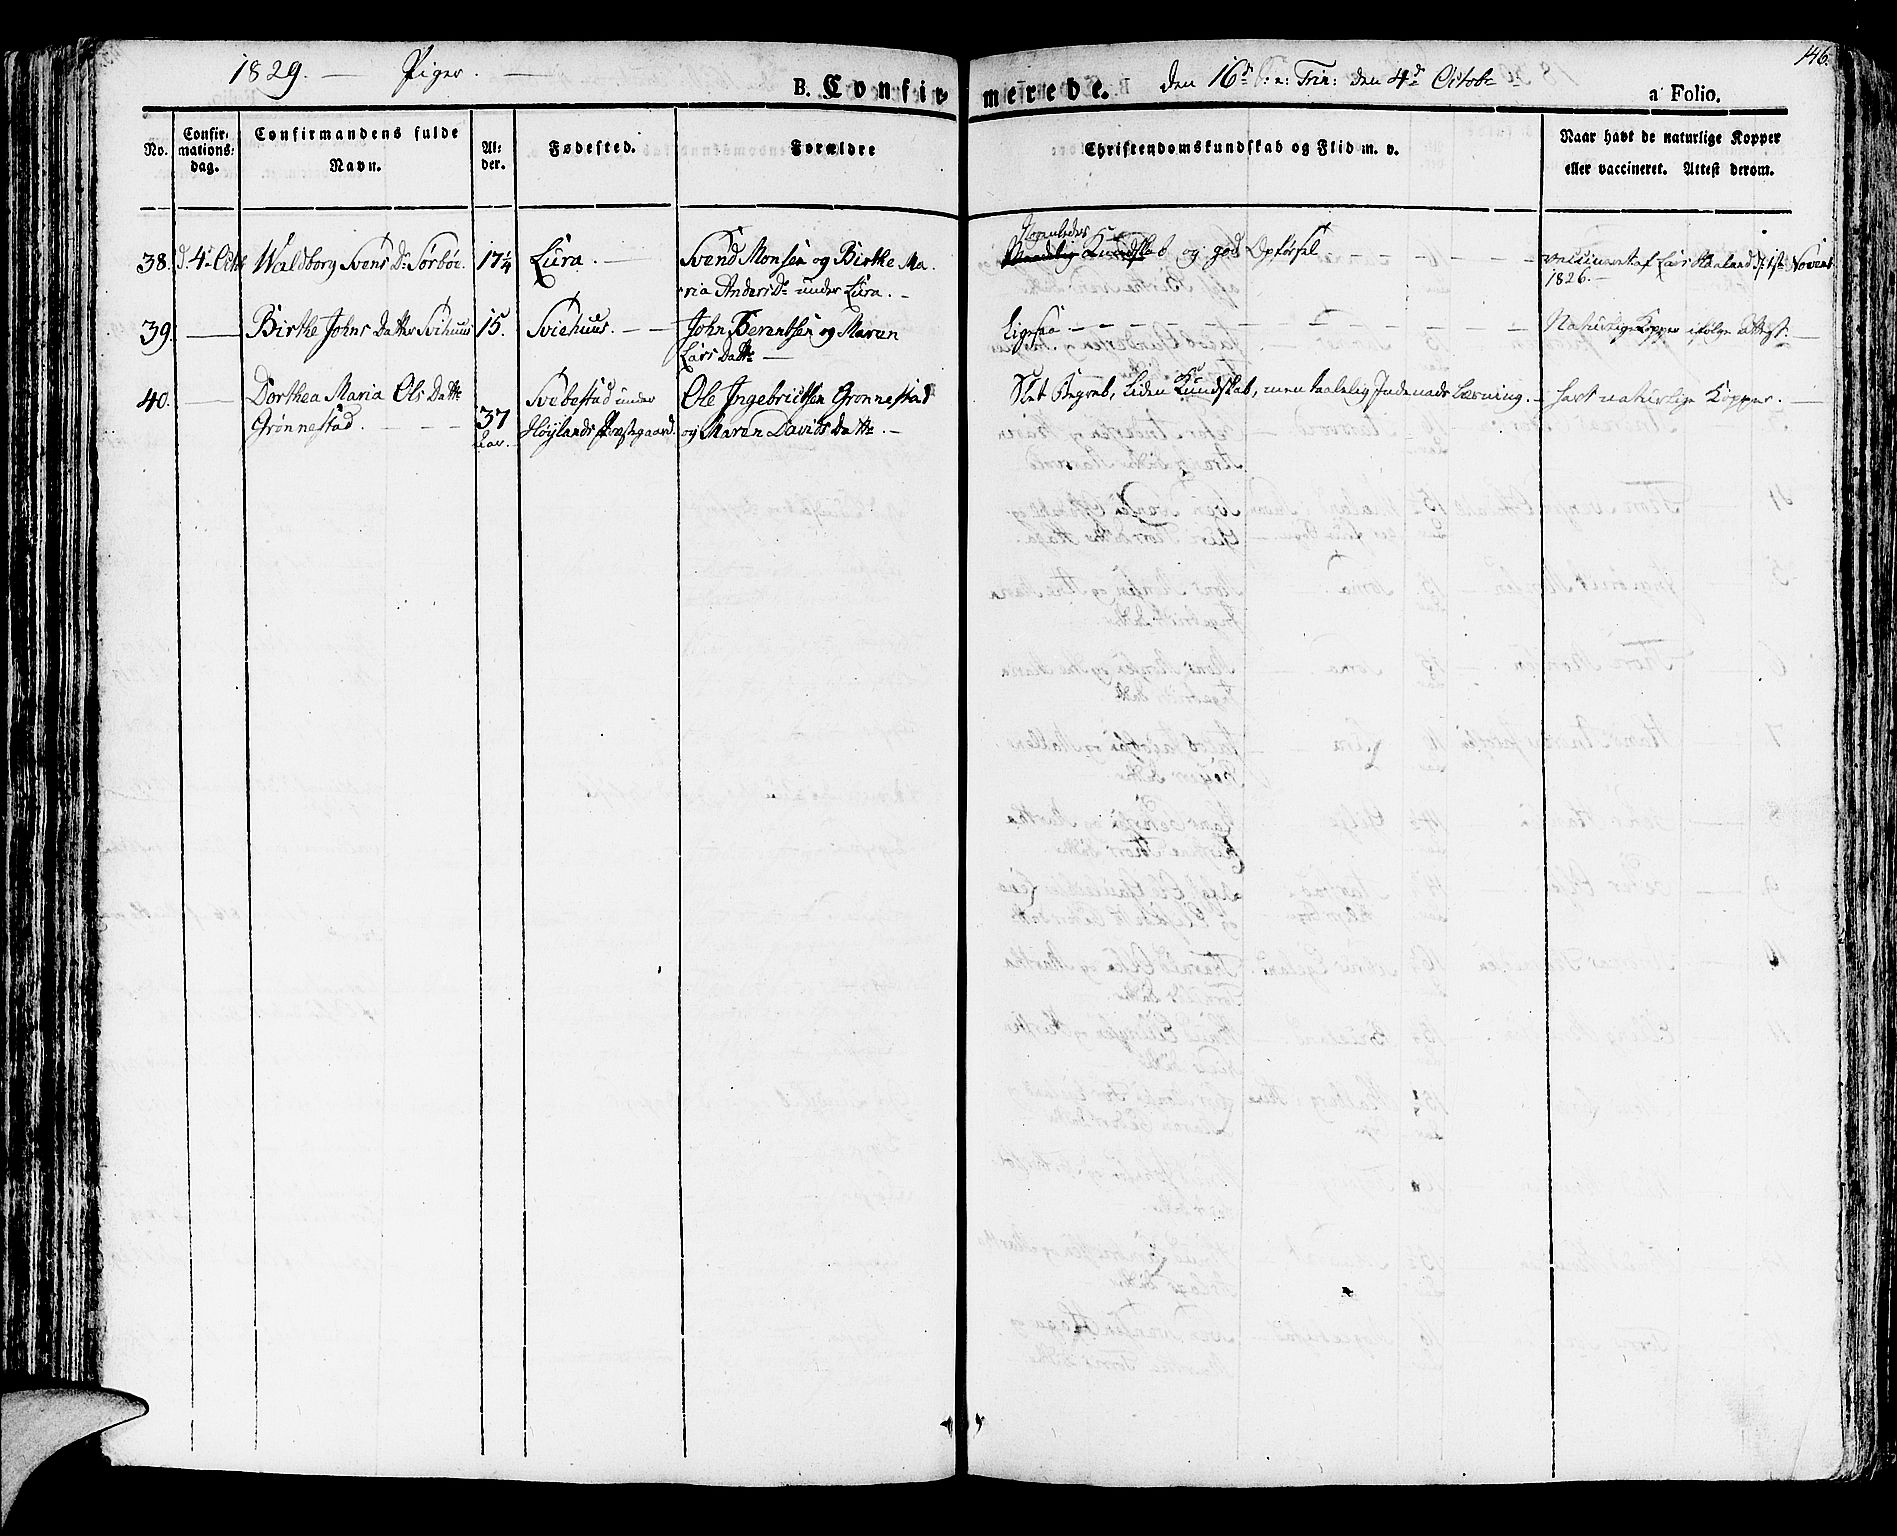 1829. — Piger. —
B. Confirmerede. den 16de S: e: Trin: den 4de Octobr
146.
a Folio.
No.
Confirmations: dag.
Confirmandens fulde Navn.
Alder.
Fødested.
Forældre
Christendomskundskab og Flid m. v.
Naar havt de naturlige Kopper
eller vaccineret. Attest derom.
38. d. 4de Octbr Waldborg Svens Dr Sørbøe. 17¼ Lura. — Svend Monsen og Birthe Ma-
ria Anders Dr under Lura. —
Maadelig Kundskab og god Opførsel — vaccineret af Lars Haaland d: 1ste Novemb
1826. —
39. — Birthe Johns Datter Svihuus 15. Sviehuus. — John Berentsen og Maren
Lars Dattr —
Ligesaa — Naturlige Kopper ifølge Attest. —
40. — Dorthea Maria Ols Dattr
Grønnestad. —
37
Aar.
Svebestad under
Høylands Præstegaard.
Ole Ingebrictsen Grønnestad
og Maren Davids Dattr. —
Slet Begreb, Liden Kundskab, men taalelig Indenads Læsning. — havt naturlige Kopper. —